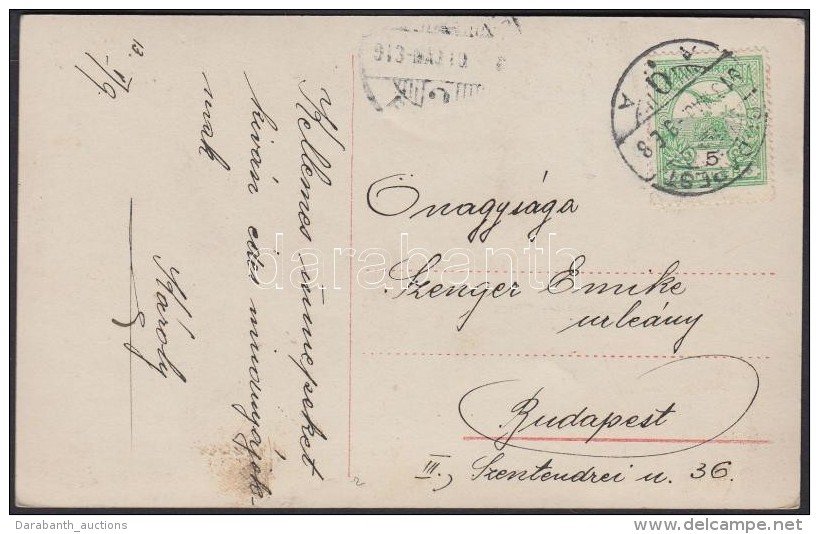 13. V/9.
Kellemes ünnepeket
kiván édes mindnyájok-
nak
Károly
Önagysága
Szenger Emike
urleány
Budapest
III., Szentendrei u. 36.
5
darabanth
Darabanth_auctions
delcampe.net